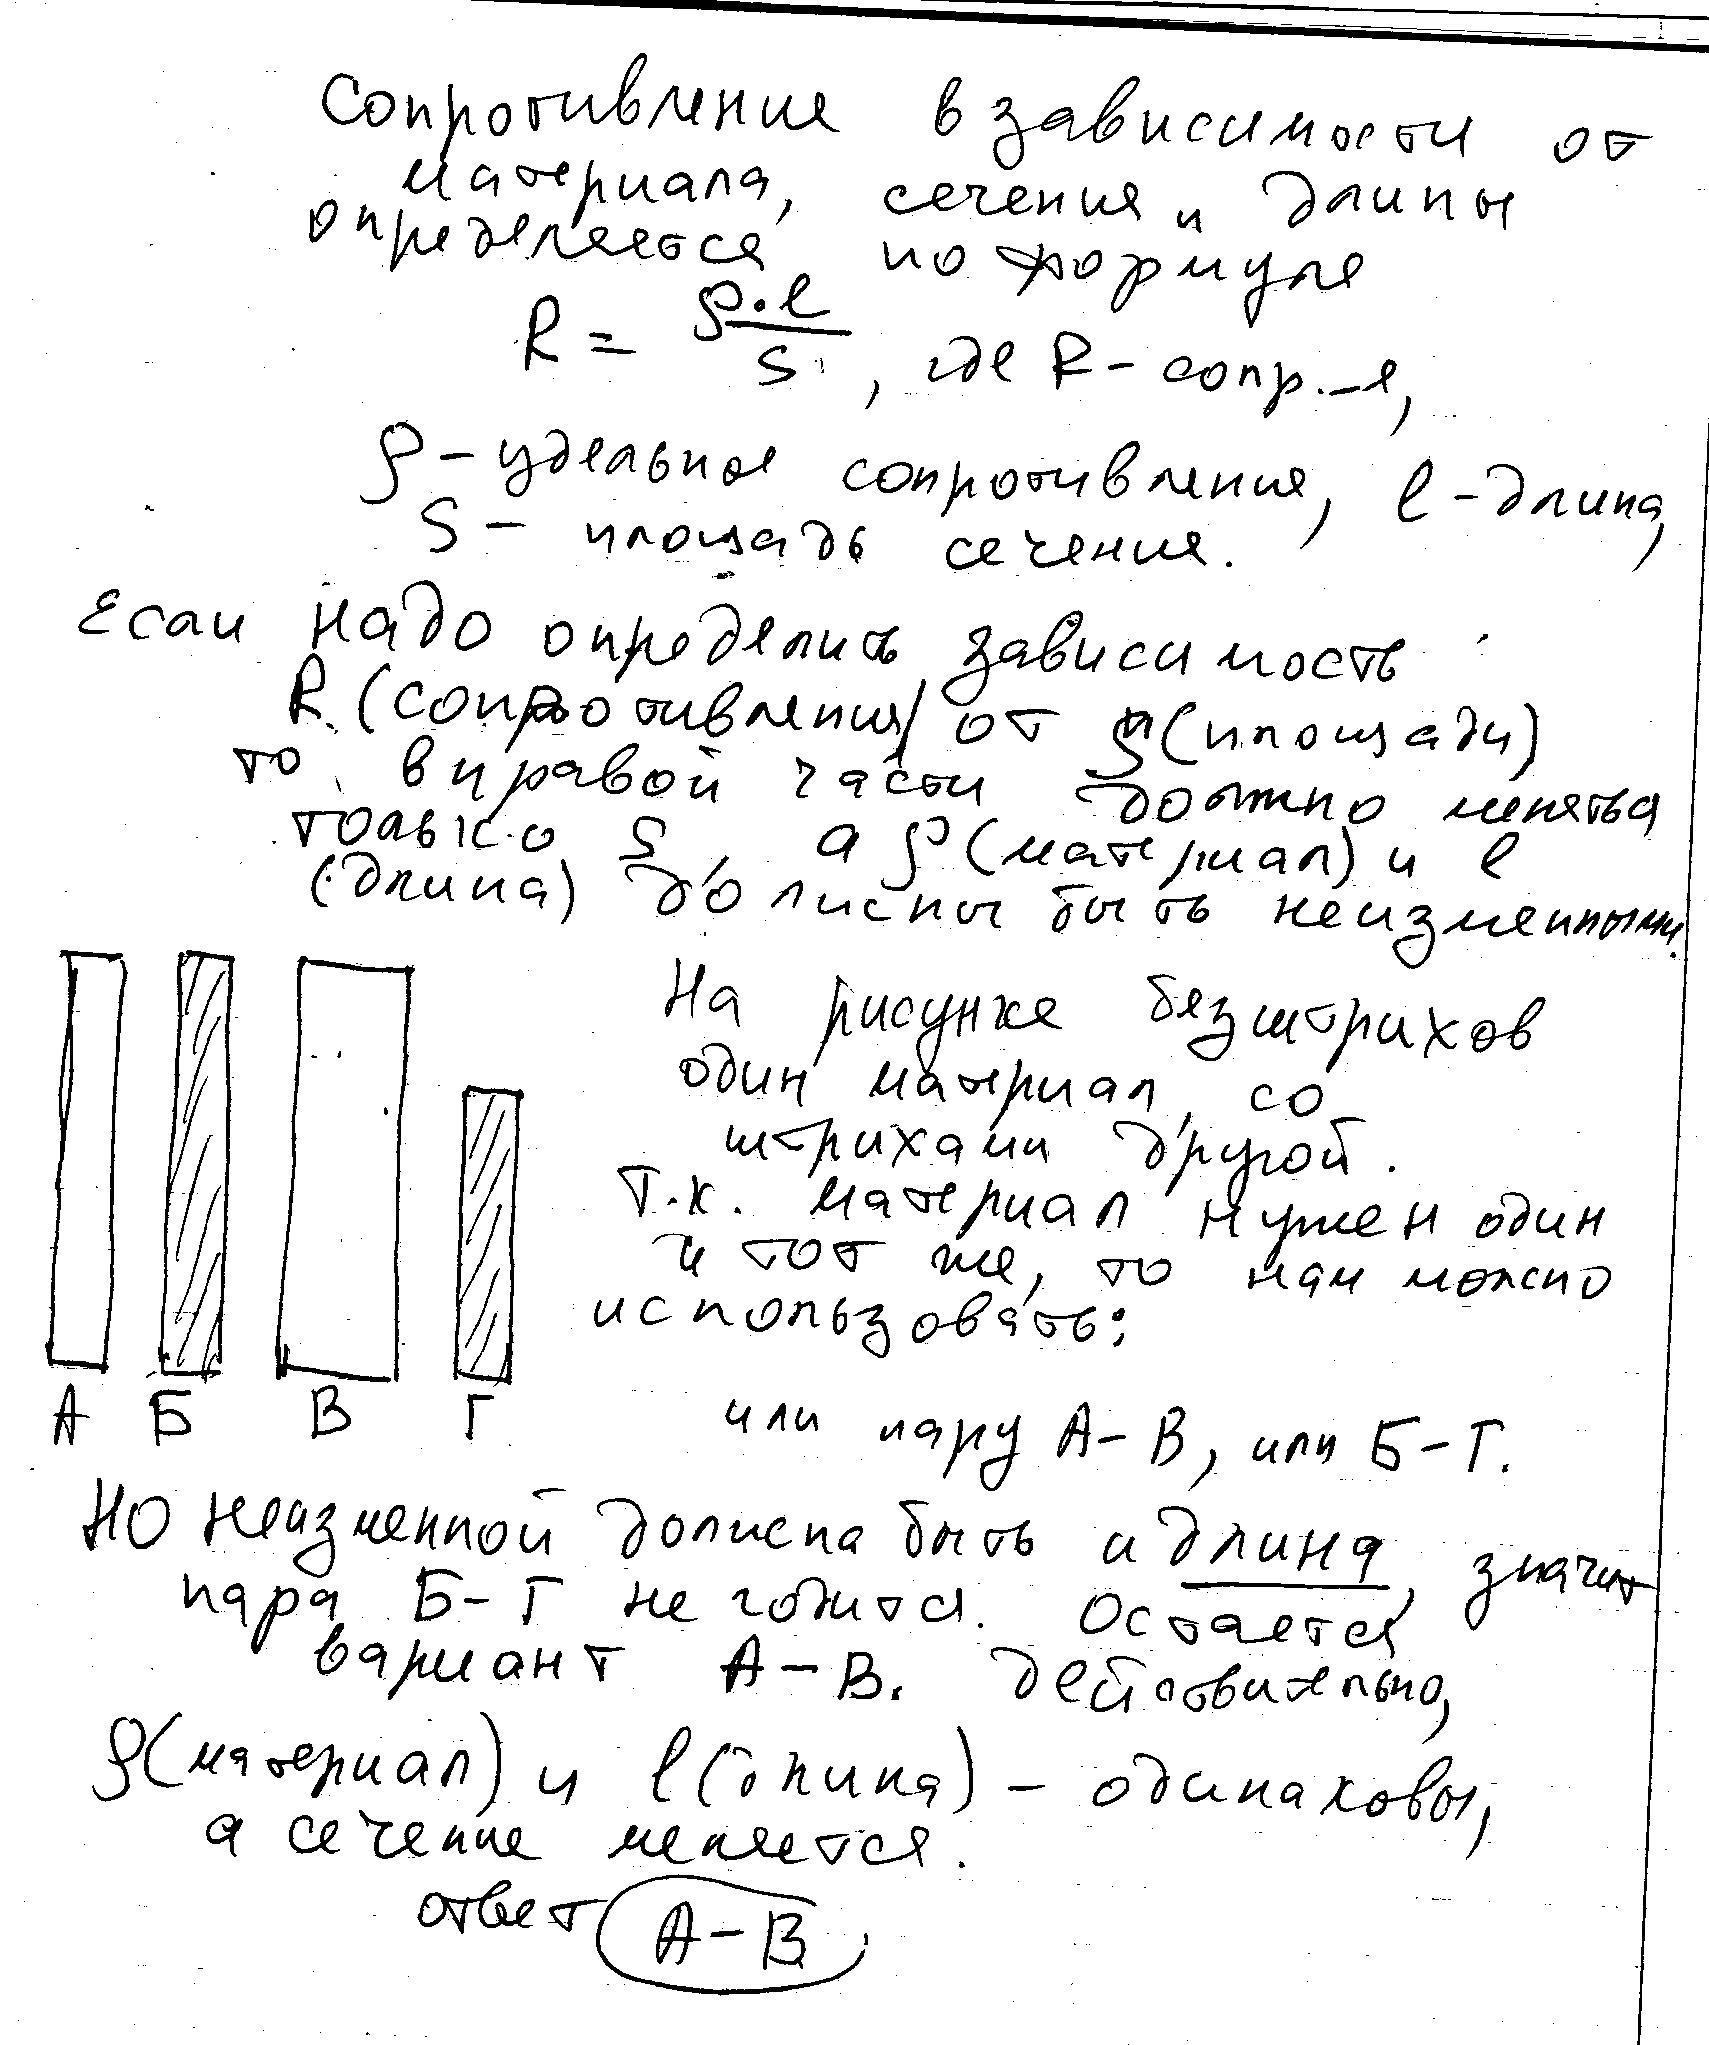 Сопротивление в зависимости от
материала, сечения и длины
определяется по формуле
R = ρ·l / S , где R - сопр.-е,
ρ - удельное сопротивление, l - длина,
S - площадь сечения.
Если надо определить зависимость
R (сопротивления) от S (площади)
то в правой части должно меняться
только S, а ρ (материал) и l
(длина) должны быть неизменными.
На рисунке без штрихов
один материал, со
штрихами другой.
Т.к. материал нужен один
и тот же, то нам можно
использовать:
А Б В Г
или пару А-В, или Б-Г.
Но неизменной должна быть и длина, значит
пара Б-Г не годится. Остается
вариант А-В. Действительно,
ρ (материал) и l (длина) - одинаковы,
а сечение меняется.
ответ А-В